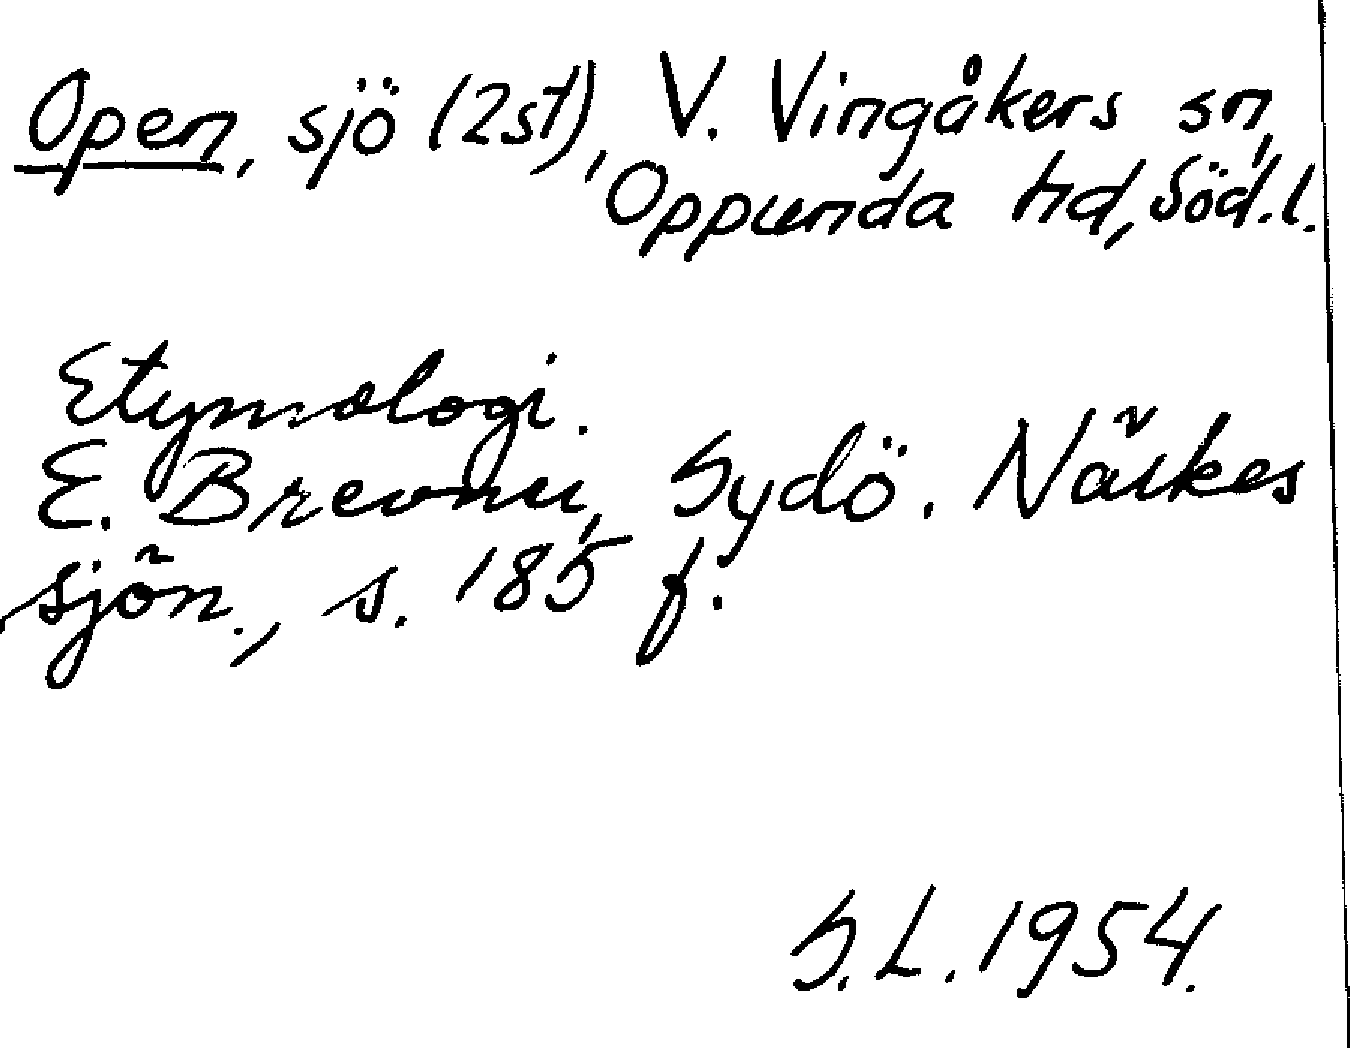 Open, sjö (2st), V. Vingåkers sn,
Oppunda hd, Söd.l.
Etymologi.
E. Brevner, Sydö. Närkes
sjön., s. 185 f.
S.L. 1954.